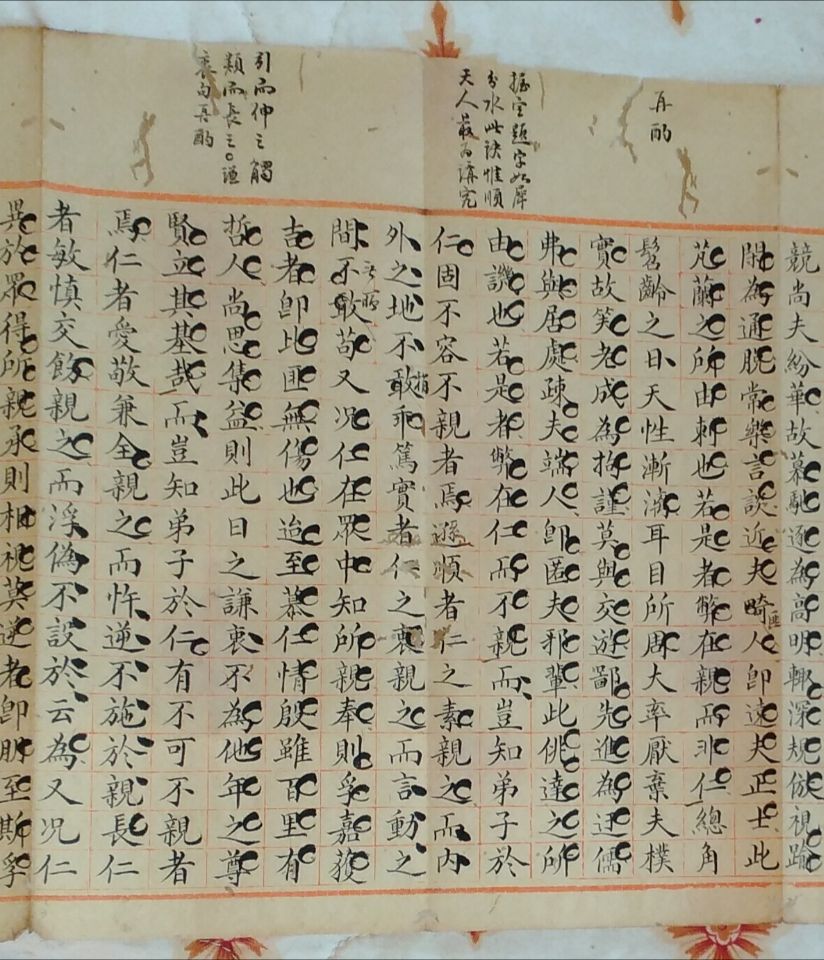 再酌
握定題字如犀
分水此訣惟順
天人最為講究
引而伸之觸
類而長之。謹
再酌
競尚夫紛華故慕馳逐為高明輙深規倣視踰
閑為通脫常樂言談近夫畸人卽遠夫正士此
芃蘭之所由刺也若是者弊在親而非仁總角
髫齡之日天性漸漓耳目所周大率厭棄夫樸
實故笑老成為拘謹莫與交遊鄙先進為迂儒
弗與居處疎夫端人卽匿夫邪輩此佻達之所
由譏也若是者弊在仁而不親而豈知弟子於
仁固不容不親者焉遜順者仁之素親之而內
外之地不敢乖篤實者仁之衷親之而言動之
間不敢苟又况仁在眾中知所親奉則孚嘉發
吉者卽比匪無傷也迨至慕仁情殷雖百里有
哲人尚思集益則此日之謙衷不為他年之尊
賢立其基哉而豈知弟子於仁有不可不親者
焉仁者愛敬兼全親之而忤逆不施於親長仁
者敏慎交飭親之而浮偽不設於云為又况仁
異於眾得所親承則相視莫逆者卽朋至斯孚